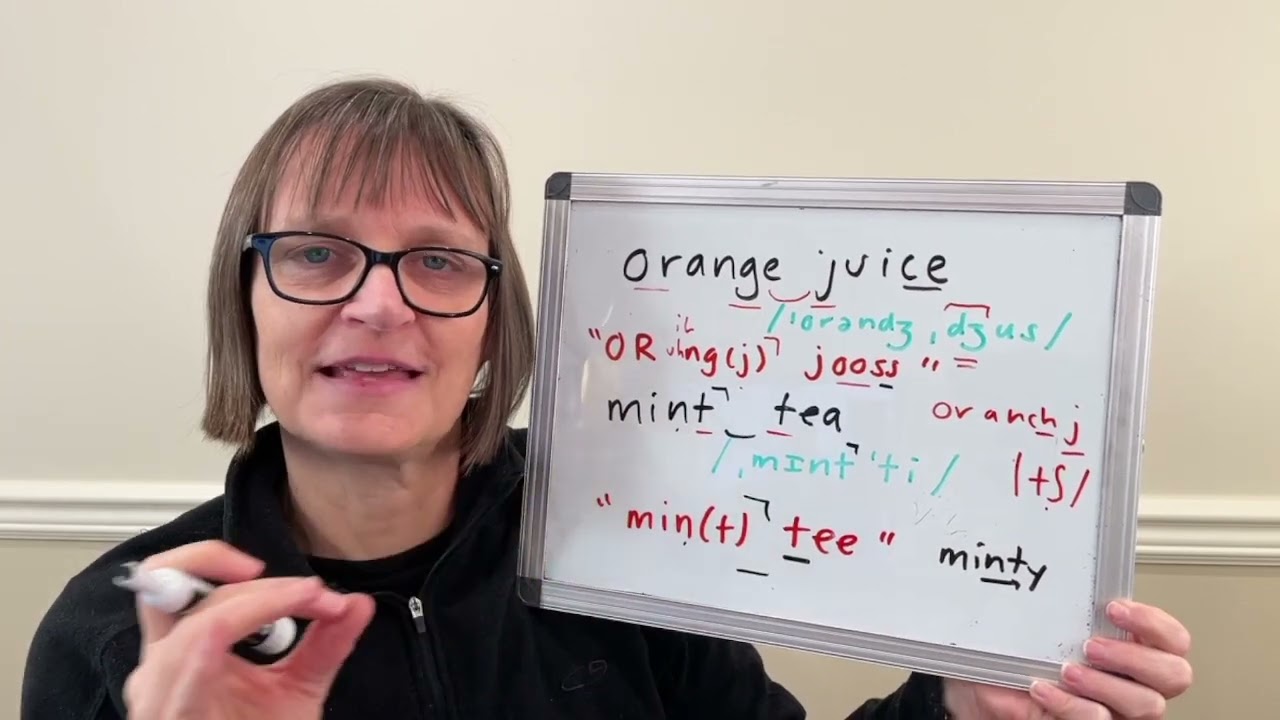 orange juice
/ˈorəndʒ ˌdʒus/
ih
"OR uhng(j)˺ jooss" =
mint˺ tea
oranchj
/ˌmɪnt˺ ˈti/
/tʃ/
"min(t)˺ tee"
minty